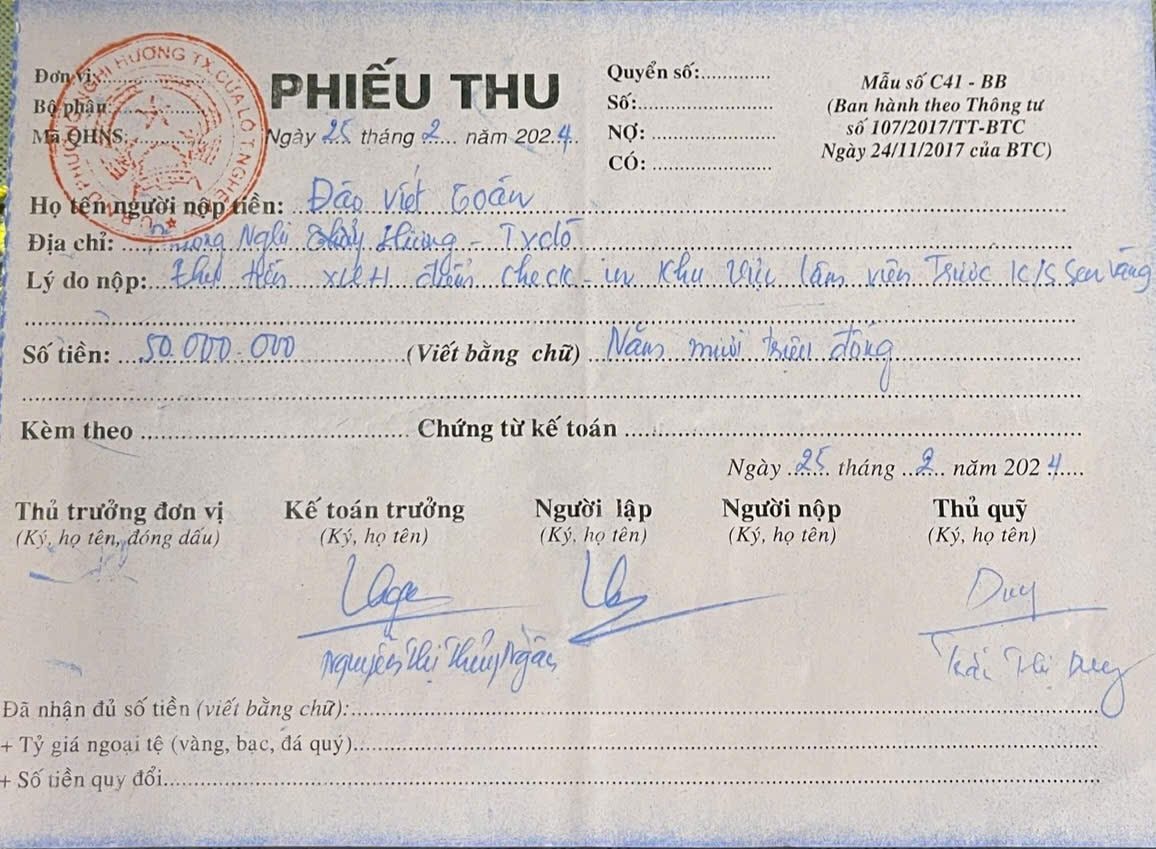 PHIẾU THU
Đơn vị:
Bộ phận:
Mã QHNS:
NGHI HƯƠNG TX.CỬA LÒ T.NGHỆ
Ngày 25 tháng 2 năm 2024
Quyển số:
Số:
NỢ:
CÓ:
Mẫu số C41 - BB
(Ban hành theo Thông tư
số 107/2017/TT-BTC
Ngày 24/11/2017 của BTC)
Họ tên người nộp tiền: Đào Viết Toán
Địa chỉ: Nghi Hương - TxCLò
Lý do nộp: Thu tiền XHH điểm check-in Khu vực lâm viên Trước K/S Sen Vàng
Số tiền: 50.000.000 (Viết bằng chữ) Năm mươi triệu đồng
Kèm theo Chứng từ kế toán
Ngày 25 tháng 2 năm 2024
Thủ trưởng đơn vị Kế toán trưởng Người lập Người nộp Thủ quỹ
(Ký, họ tên, đóng dấu) (Ký, họ tên) (Ký, họ tên) (Ký, họ tên) (Ký, họ tên)
Duy
Nguyễn Thị Thủy Ngân Thị Duy
Đã nhận đủ số tiền (viết bằng chữ):
+ Tỷ giá ngoại tệ (vàng, bạc, đá quý)
+ Số tiền quy đổi